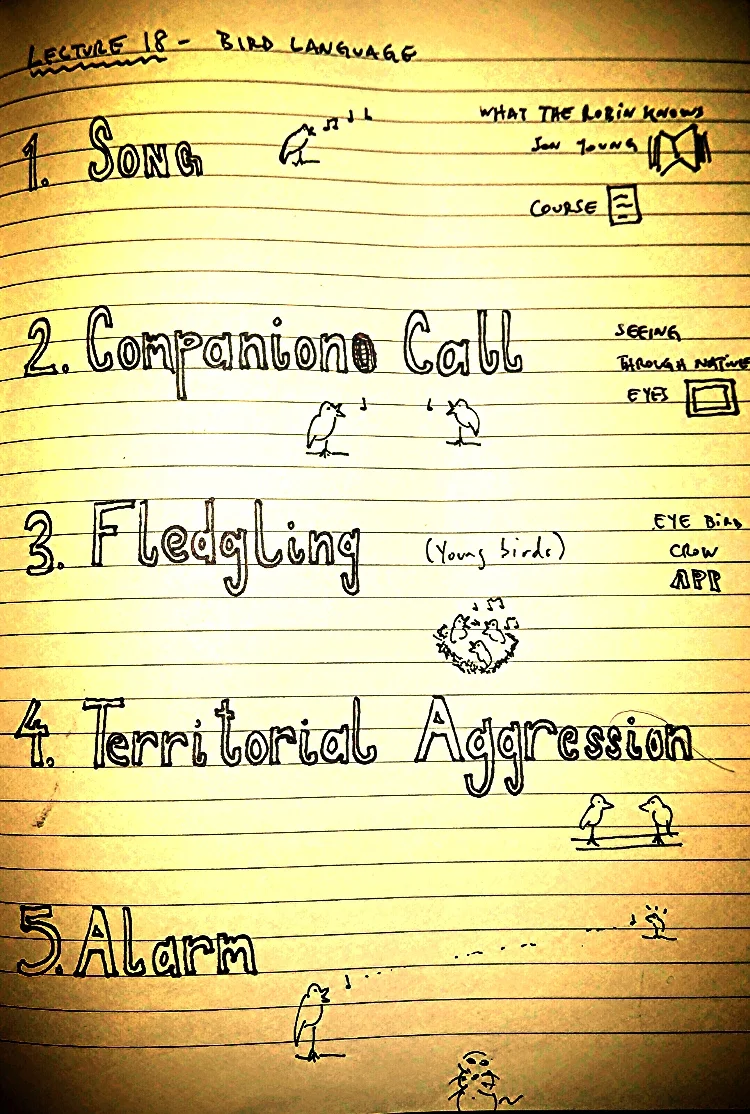 LECTURE 18 - BIRD LANGUAGE
WHAT THE ROBIN KNOWS
JON YOUNG
1. SONG
COURSE
2. Companion Call
SEEING
THROUGH NATIVE
EYES
3. Fledgling (Young birds)
EYE BIRD
CROW
APP
4. Territorial Aggression
5. Alarm